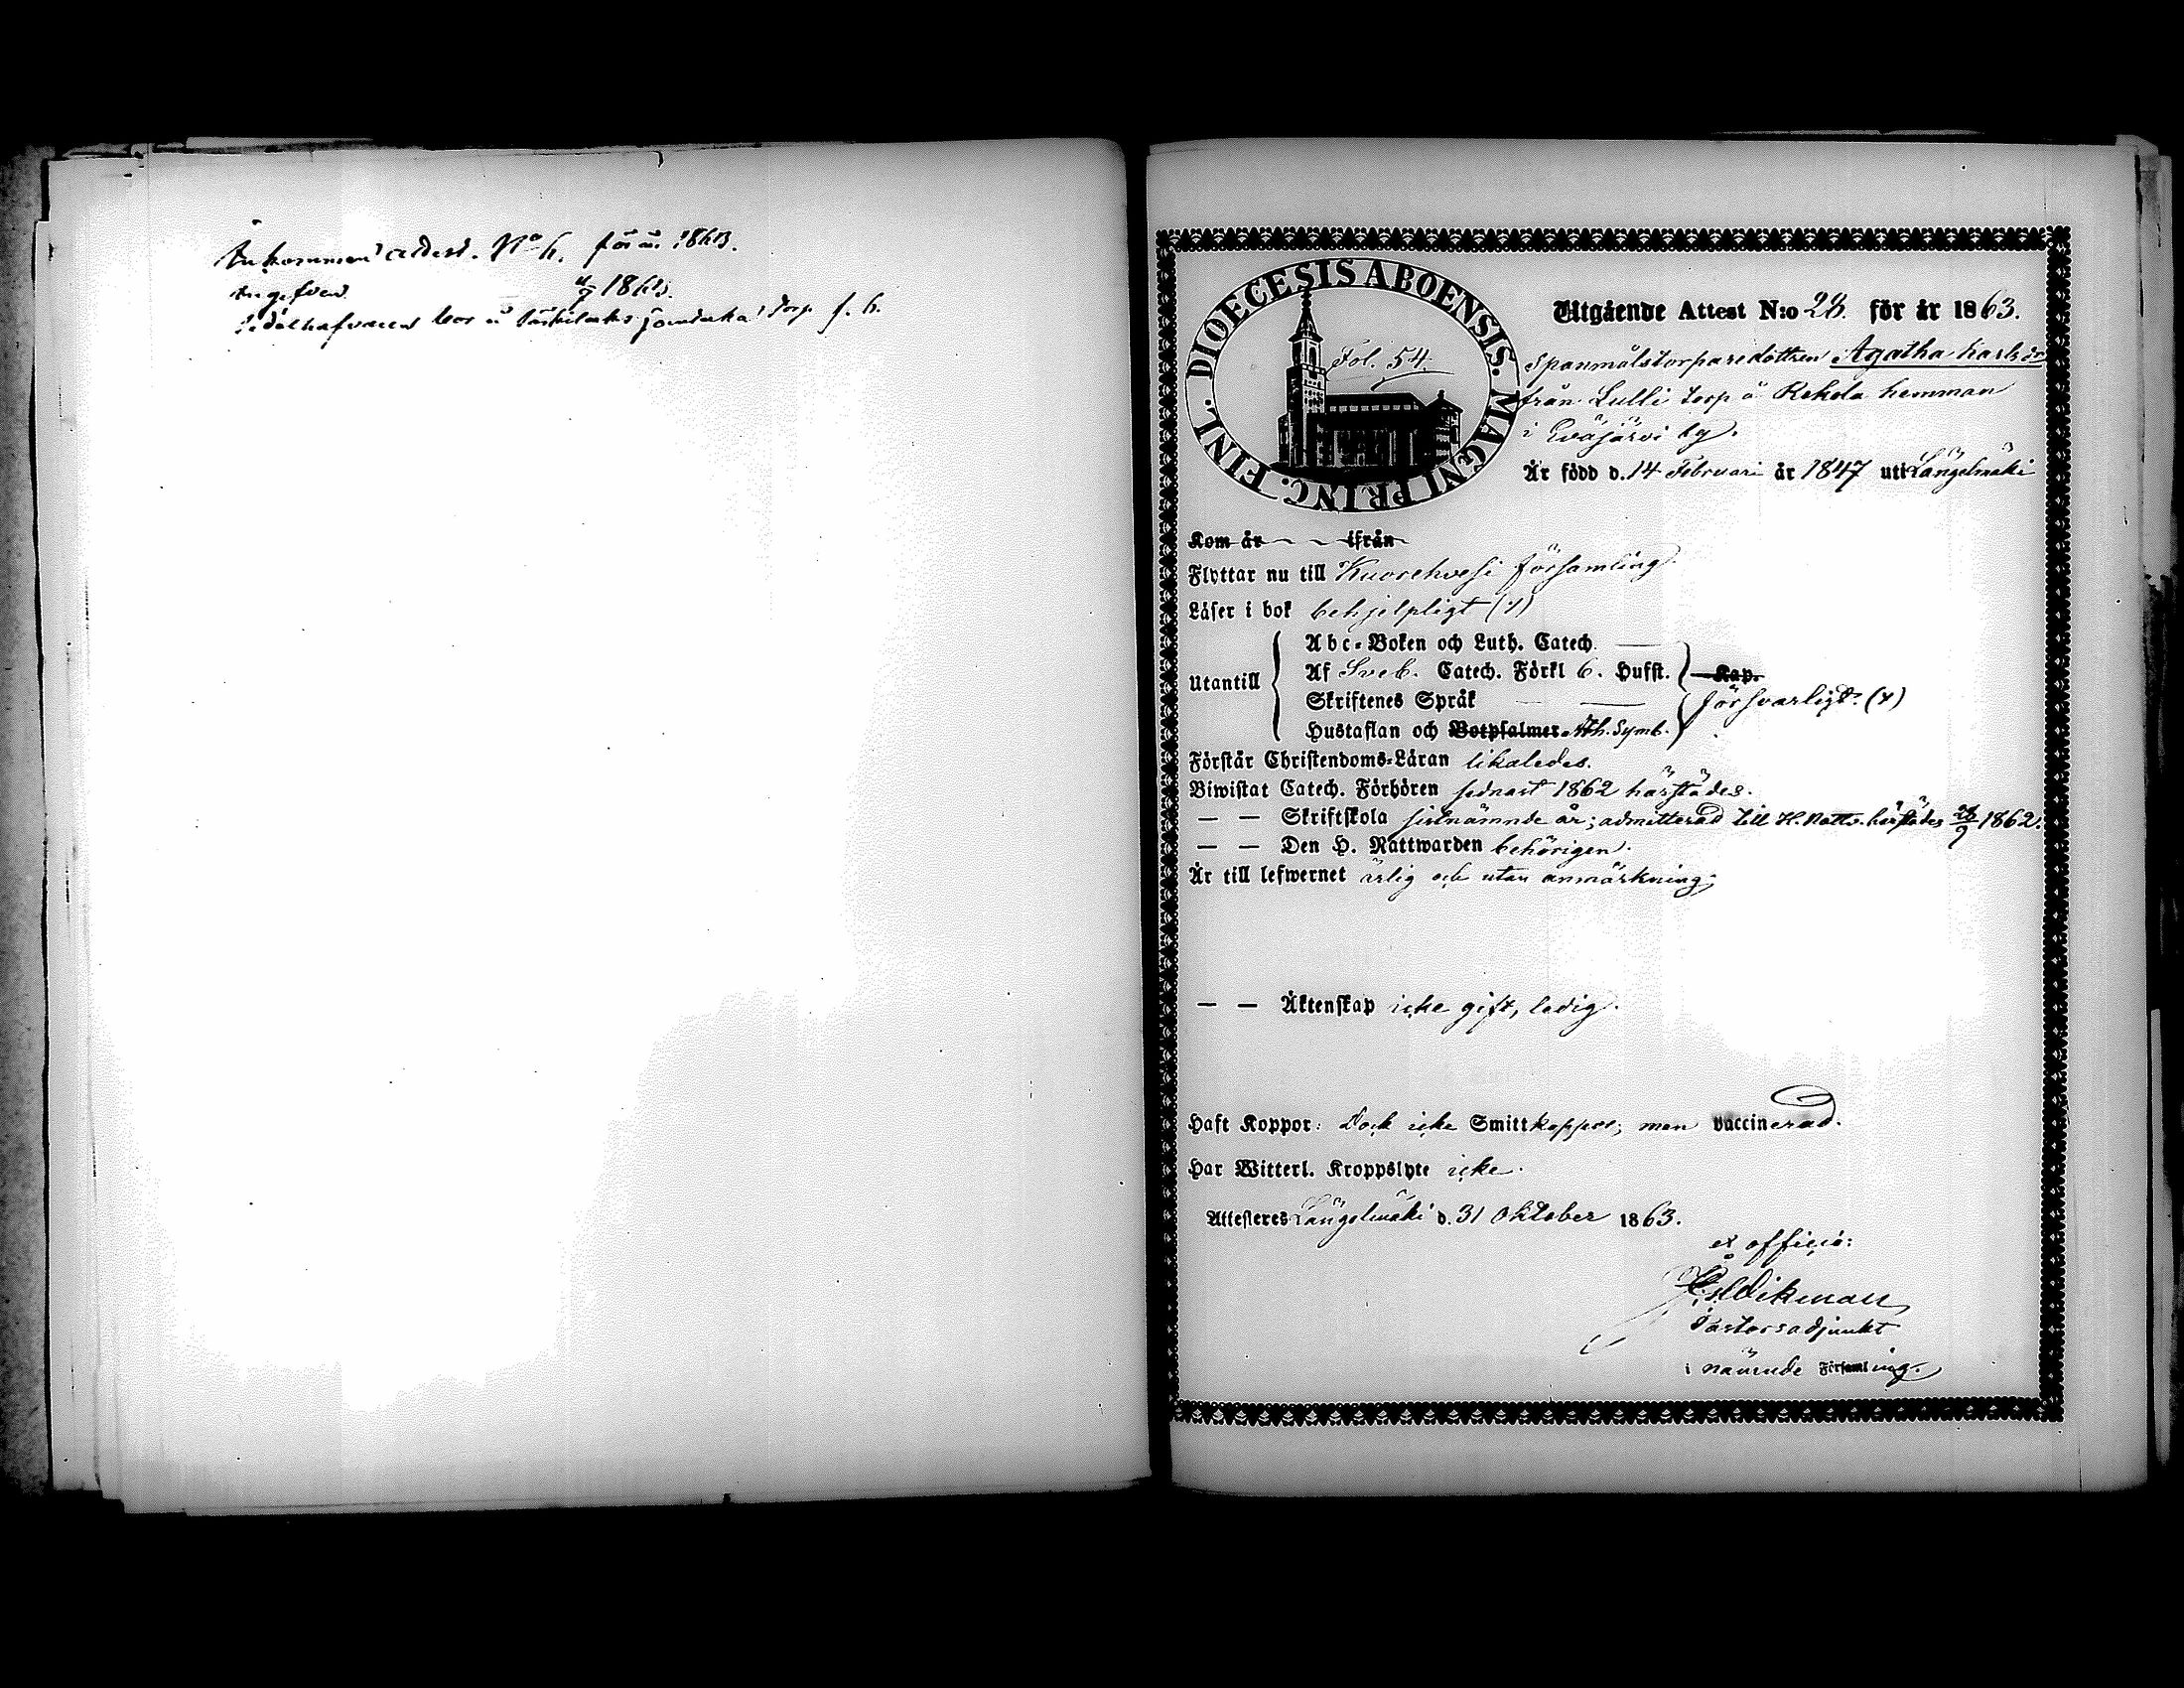 Inkommen attest. No 6. för år 1863.
Angifven 1863.
torp f. 6.
DIOECESIS ABOENSIS. MAGNI PRINC. FINL.
Fol. 54.
Utgående Attest N:o 28. för år 1863.
Spanmålstorparedottren Agatha Karlsdr
från Lulli torp å Rekola hemman
i Eväjärvi by.
Är född d. 14 Februari år 1847 uti Längelmäki
Kom år ifrån
Flyttar nu till Kuorehvesi församling.
Läser i bok behjelpligt (y)
Utantill
Abc-Boken och Luth. Catech.
Af Sveb. Catech. Förkl 6. Hufst. Kap.
Skriftenes Språk försvarligt. (y)
Hustaflan och Botpsalmer Ath. Symb.
Förstår Christendoms-Läran likaledes.
Biwistat Catech. Förhören sednast 1862 härstädes.
— — Skriftskola sistnämnde år; admitterad till H. Nattv. härstädes 28/9 1862.
— — Den H. Nattwarden behörigen.
Är till lefwernet ärlig och utan anmärkning;
— — Äktenskap icke gift, ledig.
Haft Koppor: Dock icke Smittkoppor; men vaccinerad.
Har Witterl. Kroppslyte icke.
Attesteres Längelmäki d. 31 Oktober 1863.
ex officio:
Wikman
Pastorsadjunkt
i nämnde Församling.